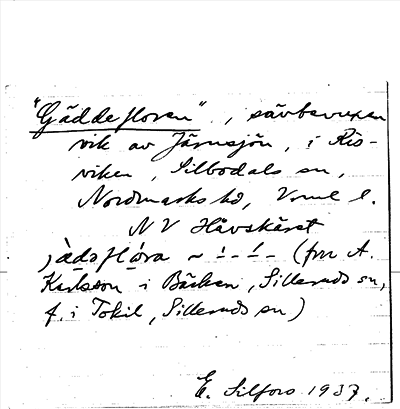 "Gäddefloren", sävbevuxen
vik av Järnsjön, i Ris-
viken, Silbodals sn,
Nordmarks hd, Verml l.
NV Hävskäret
(frn A.
Karlsson i Bäcken, Silleruds sn,
f. i Tokil, Sillerud sn)
E. Silfors 1937.